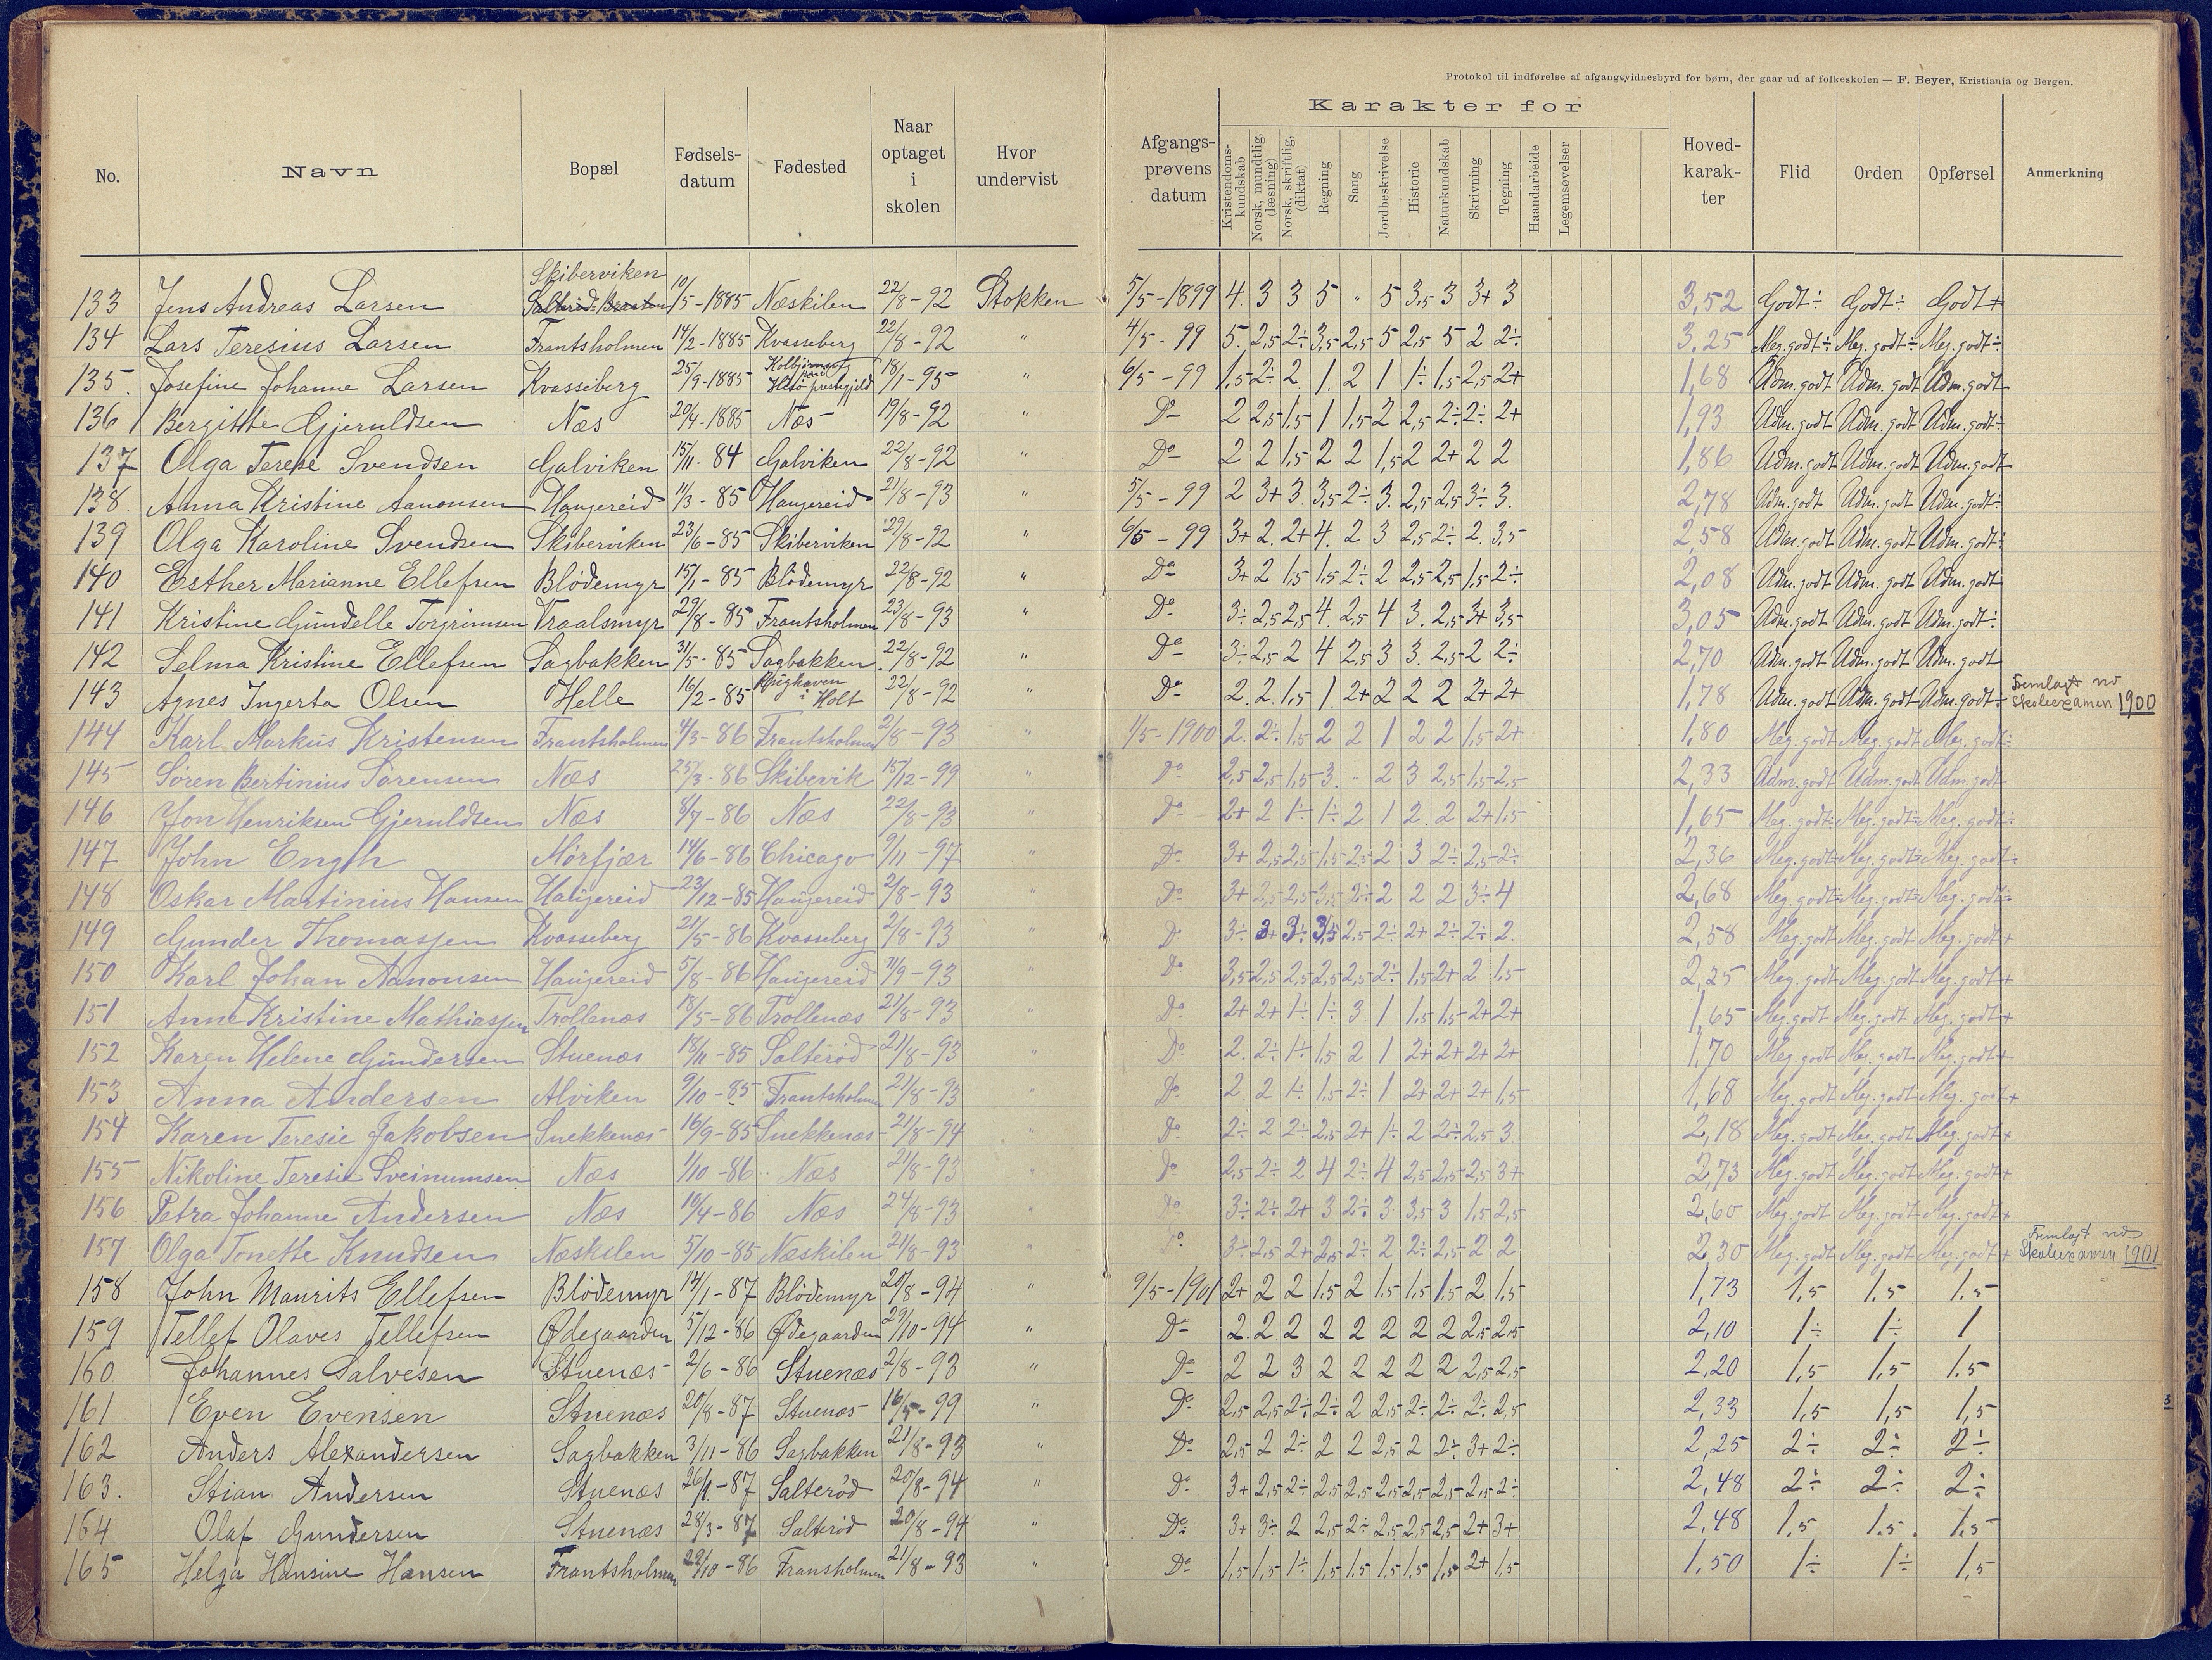 Protokol til indførelse af afgangsvidnesbyrd for børn, der gaar ud af folkeskolen — F. Beyer, Kristiania og Bergen.
Karakter for
No. Navn Bopæl Fødsels-datum Fødested Naar optaget i skolen Hvor undervist Afgangs-prøvens datum Kristendoms-kundskab Norsk, mundtlig, (læsning) Norsk, skriftlig, (diktat) Regning Sang Jordbeskrivelse Historie Naturkundskab Skrivning Tegning Haandarbeide Legemsøvelser Hoved-karak-ter Flid Orden Opførsel Anmerkning
133 Jens Andreas Larsen Skiberviken 10/5-1885 Næskilen 22/8-92 Stokken 5/5-1899 4. 3 3 5 " 5 3,5 3 3+ 3 3,52 Godt÷ Godt÷ Godt+
134 Lars Teresius Larsen Frantsholmen 14/2-1885 Kvasseberg 22/8-92 " 4/5-99 5. 2,5 2÷ 3,5 2,5 5 2,5 5 2 2÷ 3,25 Meg.godt÷ Meg.godt÷ Meg.godt÷
135. Josefine Johanne Larsen Kvasseberg 25/9-1885 18/1-95 " 6/5-99 1,5 2÷ 2. 1. 2 1 1÷ 1,5 2,5 2+ 1,68 Udm.godt Udm.godt Udm.godt
136 Bergitte Gjeruldsen Næs 20/4-1885 Næs 19/8-92 " Do 2 2,5 1,5 1 1,5 2 2,5 2÷ 2÷ 2+ 1,93 Udm.godt Udm.godt Udm.godt÷
137 Olga Terese Svendsen Galviken 15/11-84 Galviken 22/8-92 " Do 2 2 1,5 2 2 1,5 2 2+ 2 2 1,86 Udm.godt Udm.godt Udm.godt
138. Anna Kristine Aanonsen Haugereid 11/3-85 Haugereid 21/8-93 " 5/5-99 2 3+ 3. 3,5 2÷ 3. 2,5 2,5 3÷ 3. 2,78 Udm.godt Udm.godt Udm.godt÷
139 Olga Karoline Svendsen Skiberviken 23/6-85 Skiberviken 22/8-92 " 6/5-99 3+ 2. 2+ 4. 2 3 2,5 2÷ 2. 3,5 2,58 Udm.godt Udm.godt Udm.godt÷
140 Esther Marianne Ellefsen Blødemyr 15/1-85 Blødemyr 22/8-92 " Do 3+ 2 1,5 1,5 2÷ 2 2,5 2,5 1,5 2÷ 2,08 Udm.godt Udm.godt Udm.godt
141 Kristine Gundelle Torgrimsen Vraalsmyr 29/8-85 Frantsholmen 23/8-93 " Do 3÷ 2,5 2,5 4 2,5 4 3. 2,5 3+ 3,5 3,05 Udm.godt Udm.godt Udm.godt÷
142 Selma Kristine Ellefsen Sagbakken 31/5-85 Sagbakken 22/8-92 " Do 3÷ 2,5 2 4 2,5 3 3. 2,5 2 2÷ 2,70 Udm.godt Udm.godt Udm.godt
143 Agnes Ingerta Olsen Helle 16/2-85 i Holt 22/8-92 " Do 2. 2. 1,5 1. 2+ 2 2 2 2+ 2+ 1,78 Udm.godt Udm.godt Udm.godt÷ Fremlagt vd Skoleexamen 1900
144 Karl Markus Kristensen Frantsholmen 4/3-86 Frantsholmen 2/8-93 " 1/5-1900 2. 2÷ 1,5 2 2 1 2 2 1,5 2+ 1,80 Meg.godt Meg.godt Meg.godt÷
145 Søren Bertinius Sørensen Næs 25/3-86 Skibervik 15/12-99 Do 2,5 2,5 1,5 3. " 2 3 2,5 1,5 2,5 2,33 Udm.godt Udm.godt Udm.godt
146 Jon Henriksen Gjeruldsen Næs 8/7-86 Næs 22/8-93 " Do 2+ 2 1÷ 1÷ 2 1 2. 2 2+ 1,5 1,65 Meg.godt÷ Meg.godt÷ Meg.godt÷
147 John Engh Mørfjær 14/6-86 Chicago 9/11-97 " Do 3+ 2,5 2,5 1,5 2,5 2 3 2÷ 2,5 2÷ 2,36 Meg.godt÷ Meg.godt÷ Meg.godt÷
148 Oskar Martinius Hansen Haugereid 23/12-85 Haugereid 2/8-93 " Do 3+ 2,5 2,5 3,5 2÷ 2 2 2 3÷ 4 2,68 Meg.godt÷ Meg.godt÷ Meg.godt÷
149 Gunder Thomassen Kvasseberg 21/5-86 Kvasseberg 2/8-93 " Do 3÷ 3+ 3÷ 3,5 2,5 2÷ 2+ 2÷ 2÷ 2. 2,58 Meg.godt Meg.godt Meg.godt+
150 Karl Johan Aanonsen Haugereid 5/8-86 Haugereid 11/9-93 " Do 3,5 2,5 2,5 2,5 2,5 2÷ 1,5 2+ 2 1,5 2,25 Meg.godt Meg.godt Meg.godt+
151 Anne Kristine Mathiassen Trollenæs 18/5-86 Trollenæs 21/8-93 " Do 2+ 2+ 1÷ 1÷ 3. 1 1,5 1,5 2+ 2+ 1,65 Meg.godt Meg.godt Meg.godt+
152 Karen Helene Gundersen Stuenæs 18/11-85 Salterød 21/8-93 " Do 2. 2÷ 1÷ 1,5 2 1 2+ 2+ 2+ 2+ 1,70 Meg.godt Meg.godt Meg.godt+
153 Anna Andersen Alviken 9/10-85 Frantsholmen 21/8-93 " Do 2. 2 1÷ 1,5 2÷ 1 2+ 2+ 2+ 1,5 1,68 Meg.godt Meg.godt Meg.godt+
154 Karen Teresie Jakobsen Snekkenæs 16/9-85 Snekkenæs 21/8-94 " Do 2÷ 2 2÷ 2,5 2+ 1÷ 2 2÷ 2,5 3. 2,18 Meg.godt Meg.godt Meg.godt+
155 Nikoline Teresie Sveinumsen Næs 1/10-86 Næs 21/8-93 " Do 2,5 2÷ 2 4 2÷ 4 2,5 2,5 2,5 3+ 2,73 Meg.godt Meg.godt Meg.godt+
156 Petra Johanne Andersen Næs 10/4-86 Næs 24/8-93 " Do 3÷ 2÷ 2+ 3 2÷ 3 3,5 3 1,5 2,5 2,60 Meg.godt Meg.godt Meg.godt+
157 Olga Tonette Knudsen Næskilen 5/10-85 Næskilen 21/8-93 " Do 3÷ 2,5 2+ 2,5 2÷ 2 2÷ 2,5 2 2 2,30 Meg.godt Meg.godt Meg.godt+ Fremlagt vd Skoleexamen 1901
158 John Maurits Ellefsen Blødemyr 14/1-87 Blødemyr 20/8-94 " 9/5-1901 2+ 2 2 1,5 2 1,5 1,5 1,5 2 1,5 1,73 1,5 1,5 1,5
159 Tellef Olaves Tellefsen Ødegaarden 5/12-86 Ødegaarden 29/10-94 " Do 2. 2. 2 2 2 2 2 2 2,5 2,5 2,10 1÷ 1÷ 1
160. Johannes Salvesen Stuenæs 2/6-86 Stuenæs 2/8-93 " Do 2 2 3 2 2 2 2 2 2,5 2,5 2,20 1,5 1,5 1,5
161 Even Evensen Stuenæs 20/8-87 Stuenæs 16/5-99 " Do 2,5 2,5 2÷ 2÷ 2 2,5 2÷ 2÷ 2÷ 2,5 2,33 1,5 1,5 1,5
162 Anders Alexandersen Sagbakken 3/11-86 Sagbakken 21/8-93 " Do 2,5 2 2÷ 2 2 2,5 2 2÷ 3+ 2÷ 2,25 2÷ 2÷ 2÷
163. Stian Andersen Stuenæs 26/1-87 Salterød 20/8-94 " Do 3+ 2,5 2÷ 2,5 2,5 2,5 2,5 2,5 2,5 2÷ 2,48 2÷ 2÷ 2÷
164 Olaf Gundersen Stuenæs 28/3-87 Salterød 20/8-94 " Do 3+ 3÷ 2 2,5 2÷ 2,5 2,5 2,5 2+ 3+ 2,48 1,5 1,5. 1,5
165 Helga Hansine Hansen Frantsholmen 22/10-86 Fransholmen 21/8-93 " Do 1,5 1,5 1÷ 1,5 1,5 1,5 1,5 1,5 2+ 1,5 1,50 1÷ 1÷ 1,5